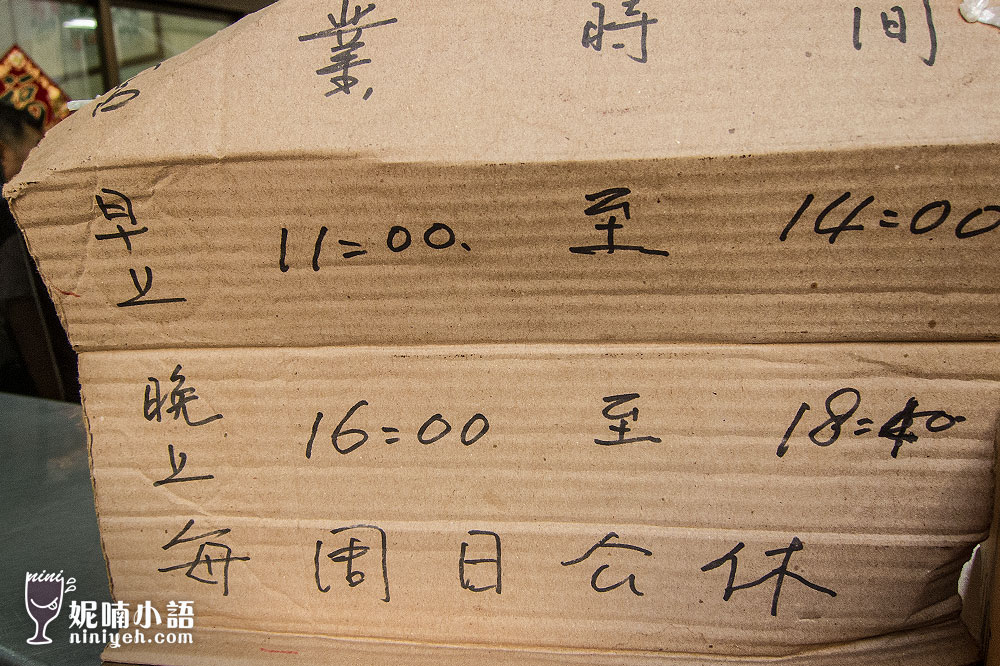 營業時間
早上 11:00 至 14:00
晚上 16:00 至 18:40
每周日公休
nini
妮喃小語
niniyeh.com